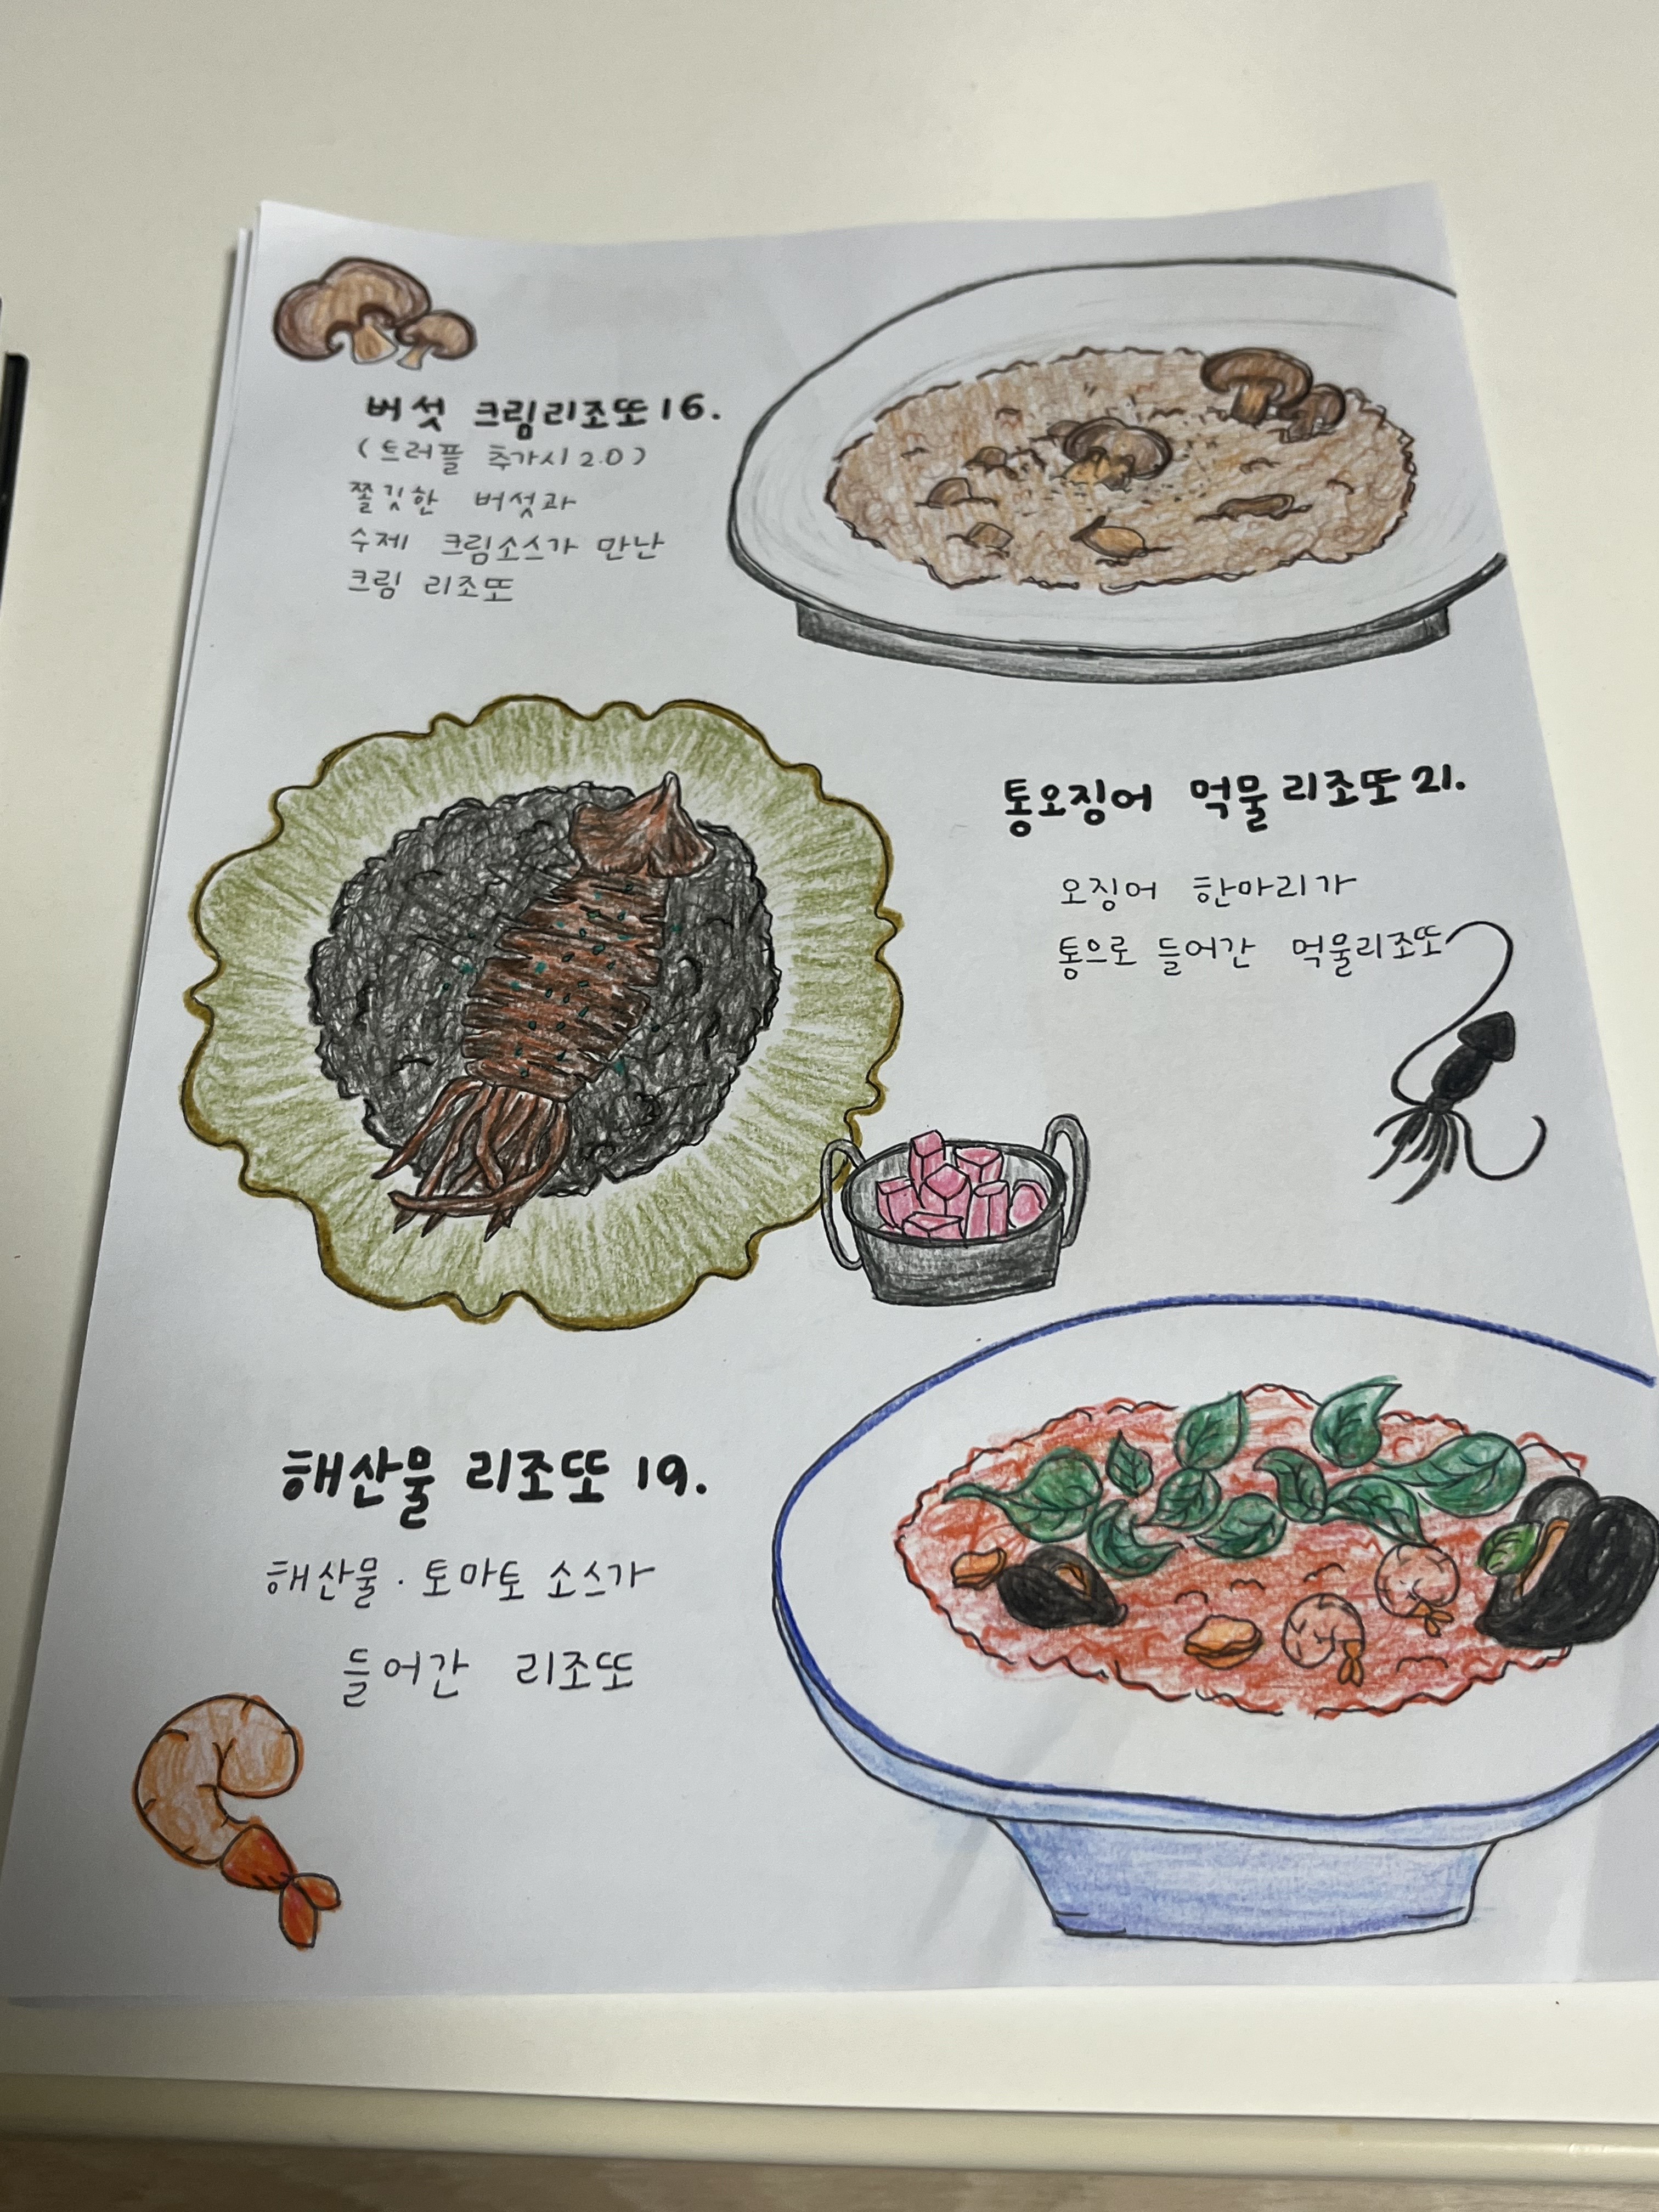 버섯 크림리조또 16.
(트러플 추가시 2.0)
쫄깃한 버섯과
수제 크림소스가 만난
크림 리조또
통오징어 먹물리조또 21.
오징어 한마리가
통으로 들어간 먹물리조또
해산물 리조또 19.
해산물·토마토 소스가
들어간 리조또